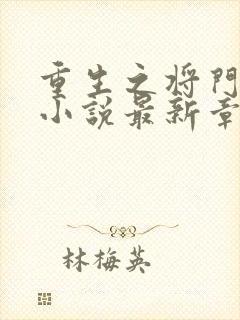 重生之将門
小说最新章
林梅英